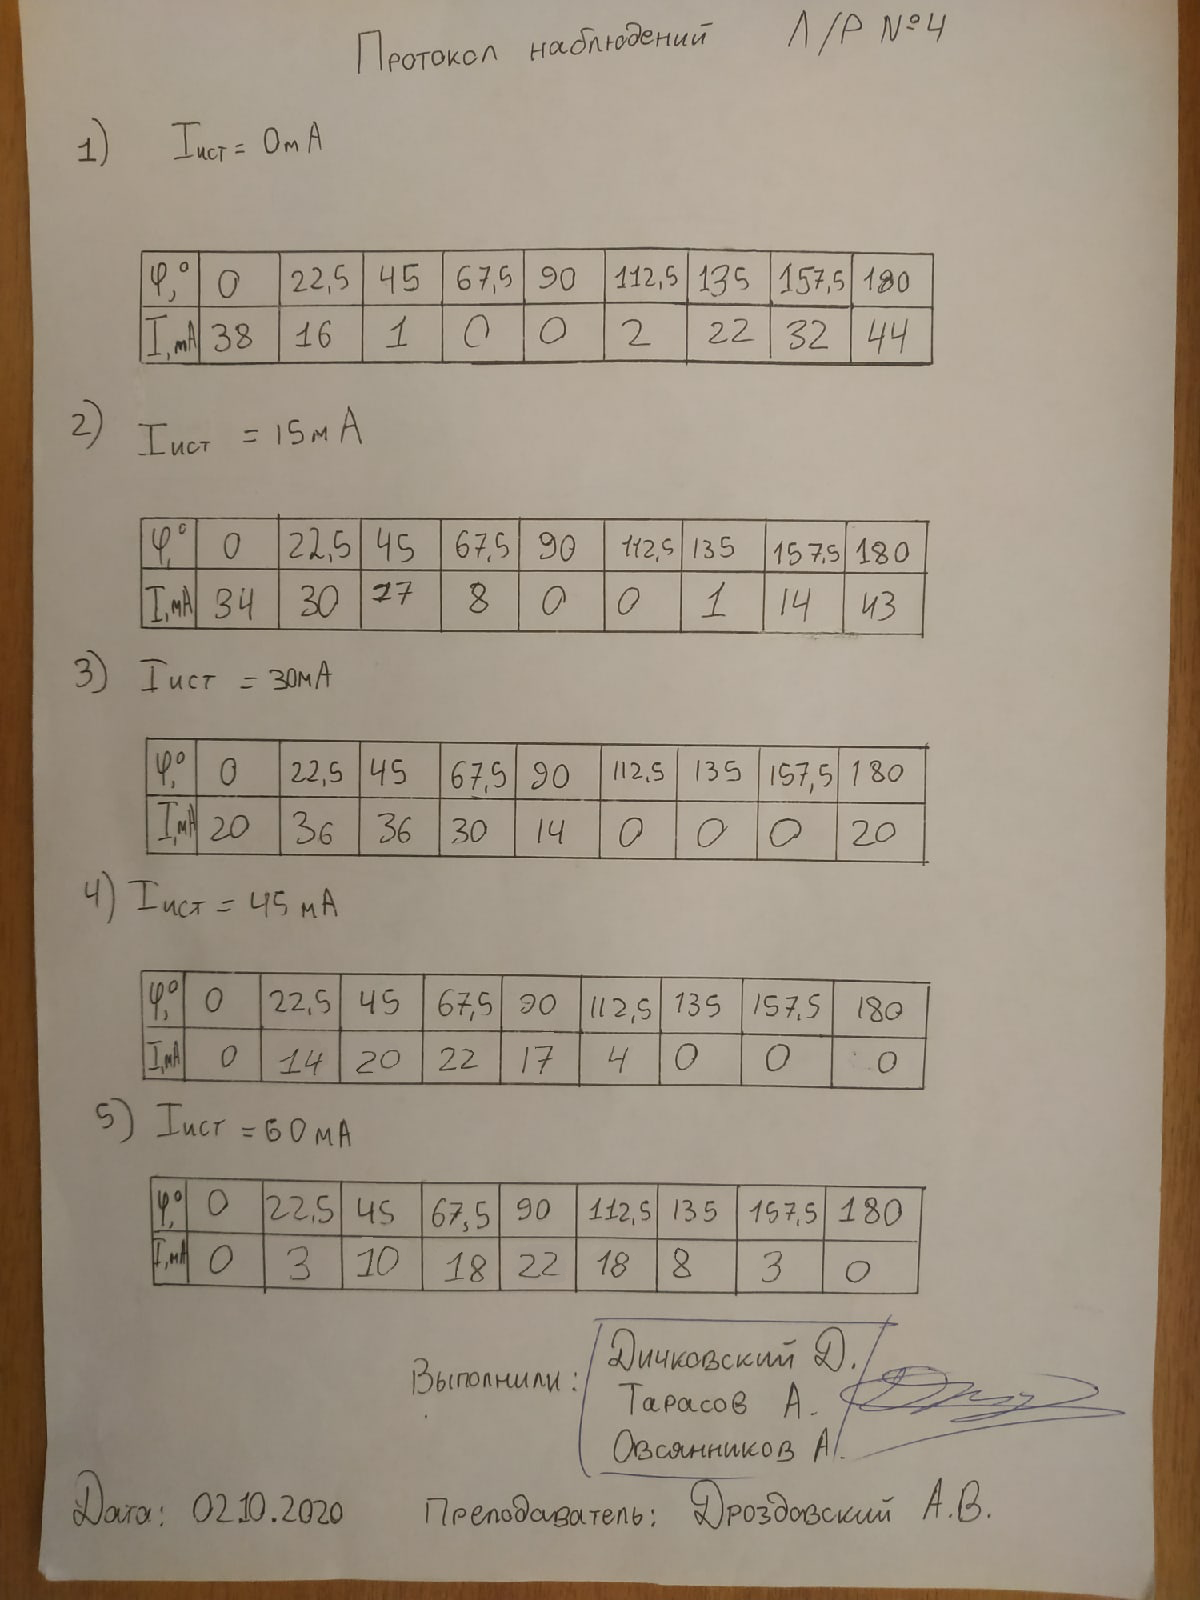 Протокол наблюдений Л/Р №4
1) Iист = 0mA
φ,° 0 22,5 45 67,5 90 112,5 135 157,5 180
I,мА 38 16 1 0 0 2 22 32 44
2) Iист = 15мА
φ,° 0 22,5 45 67,5 90 112,5 135 157,5 180
I,мА 34 30 27 8 0 0 1 14 43
3) Iист = 30мА
φ,° 0 22,5 45 67,5 90 112,5 135 157,5 180
I,мА 20 36 36 30 14 0 0 0 20
4) Iист = 45 мА
φ,° 0 22,5 45 67,5 90 112,5 135 157,5 180
I,мА 0 14 20 22 17 4 0 0 0
5) Iист = 60мА
φ,° 0 22,5 45 67,5 90 112,5 135 157,5 180
I,мА 0 3 10 18 22 18 8 3 0
Выполнили: Дичковский Д.
Тарасов А.
Овсянников А.
Дата: 02.10.2020 Преподаватель: Дроздовский А.В.